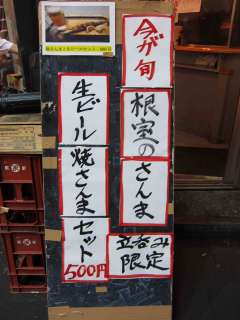 今が旬
根室のさんま
立呑み
限定
生ビール
焼さんま
セット
500円